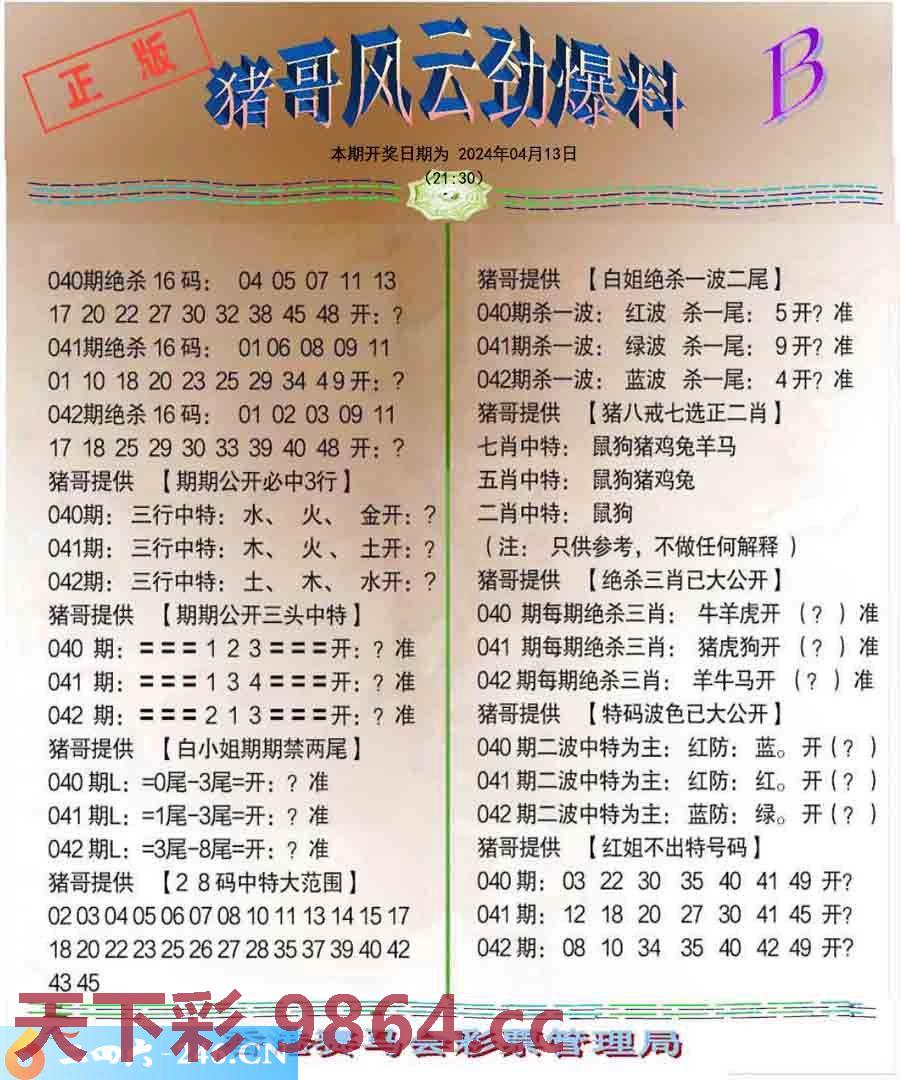 正版
猪哥风云劲爆料
B
本期开奖日期为 2024年04月13日
(21:30)
040期绝杀16码： 04 05 07 11 13
17 20 22 27 30 32 38 45 48 开：？
041期绝杀16码： 01 06 08 09 11
01 10 18 20 23 25 29 34 49 开：？
042期绝杀16码： 01 02 03 09 11
17 18 25 29 30 33 39 40 48 开：？
猪哥提供 【期期公开必中3行】
040期：三行中特：水、 火、 金开：？
041期：三行中特：木、 火、 土开：？
042期：三行中特：土、 木、 水开：？
猪哥提供 【期期公开三头中特】
040 期：〓〓〓 1 2 3 〓〓〓开：？准
041 期：〓〓〓 1 3 4 〓〓〓开：？准
042 期：〓〓〓 2 1 3 〓〓〓开：？准
猪哥提供 【白小姐期期禁两尾】
040 期L：=0尾-3尾=开：？准
041 期L：=1尾-3尾=开：？准
042 期L：=3尾-8尾=开：？准
猪哥提供 【28码中特大范围】
02 03 04 05 06 07 08 10 11 13 14 15 17
18 20 22 23 25 26 27 28 35 37 39 40 42
43 45
猪哥提供 【白姐绝杀一波二尾】
040期杀一波： 红波 杀一尾： 5开？准
041期杀一波： 绿波 杀一尾： 9开？准
042期杀一波： 蓝波 杀一尾： 4开？准
猪哥提供 【猪八戒七选正二肖】
七肖中特： 鼠狗猪鸡兔羊马
五肖中特： 鼠狗猪鸡兔
二肖中特： 鼠狗
（注： 只供参考，不做任何解释）
猪哥提供 【绝杀三肖已大公开】
040 期每期绝杀三肖： 牛羊虎开 （？）准
041 期每期绝杀三肖： 猪虎狗开 （？）准
042 期每期绝杀三肖： 羊牛马开 （？）准
猪哥提供 【特码波色已大公开】
040 期二波中特为主：红防：蓝。开（？）
041 期二波中特为主：红防：红。开（？）
042 期二波中特为主：蓝防：绿。开（？）
猪哥提供 【红姐不出特号码】
040 期： 03 22 30 35 40 41 49 开?
041 期： 12 18 20 27 30 41 45 开?
042 期： 08 10 34 35 40 42 49 开?
天下彩 9864.cc
二四六-246.CN
赛马会彩票管理局